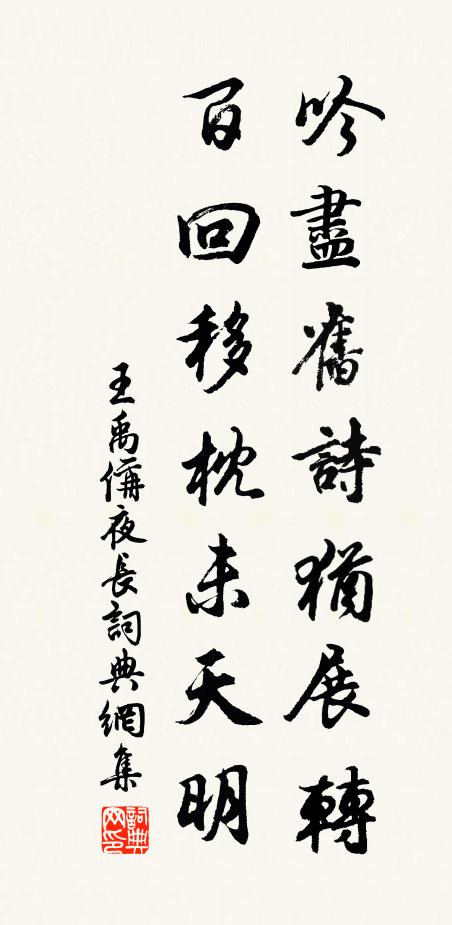 吟盡舊詩猶展轉
百回移枕未天明
王禹偁夜長詞典網集
詞典網印